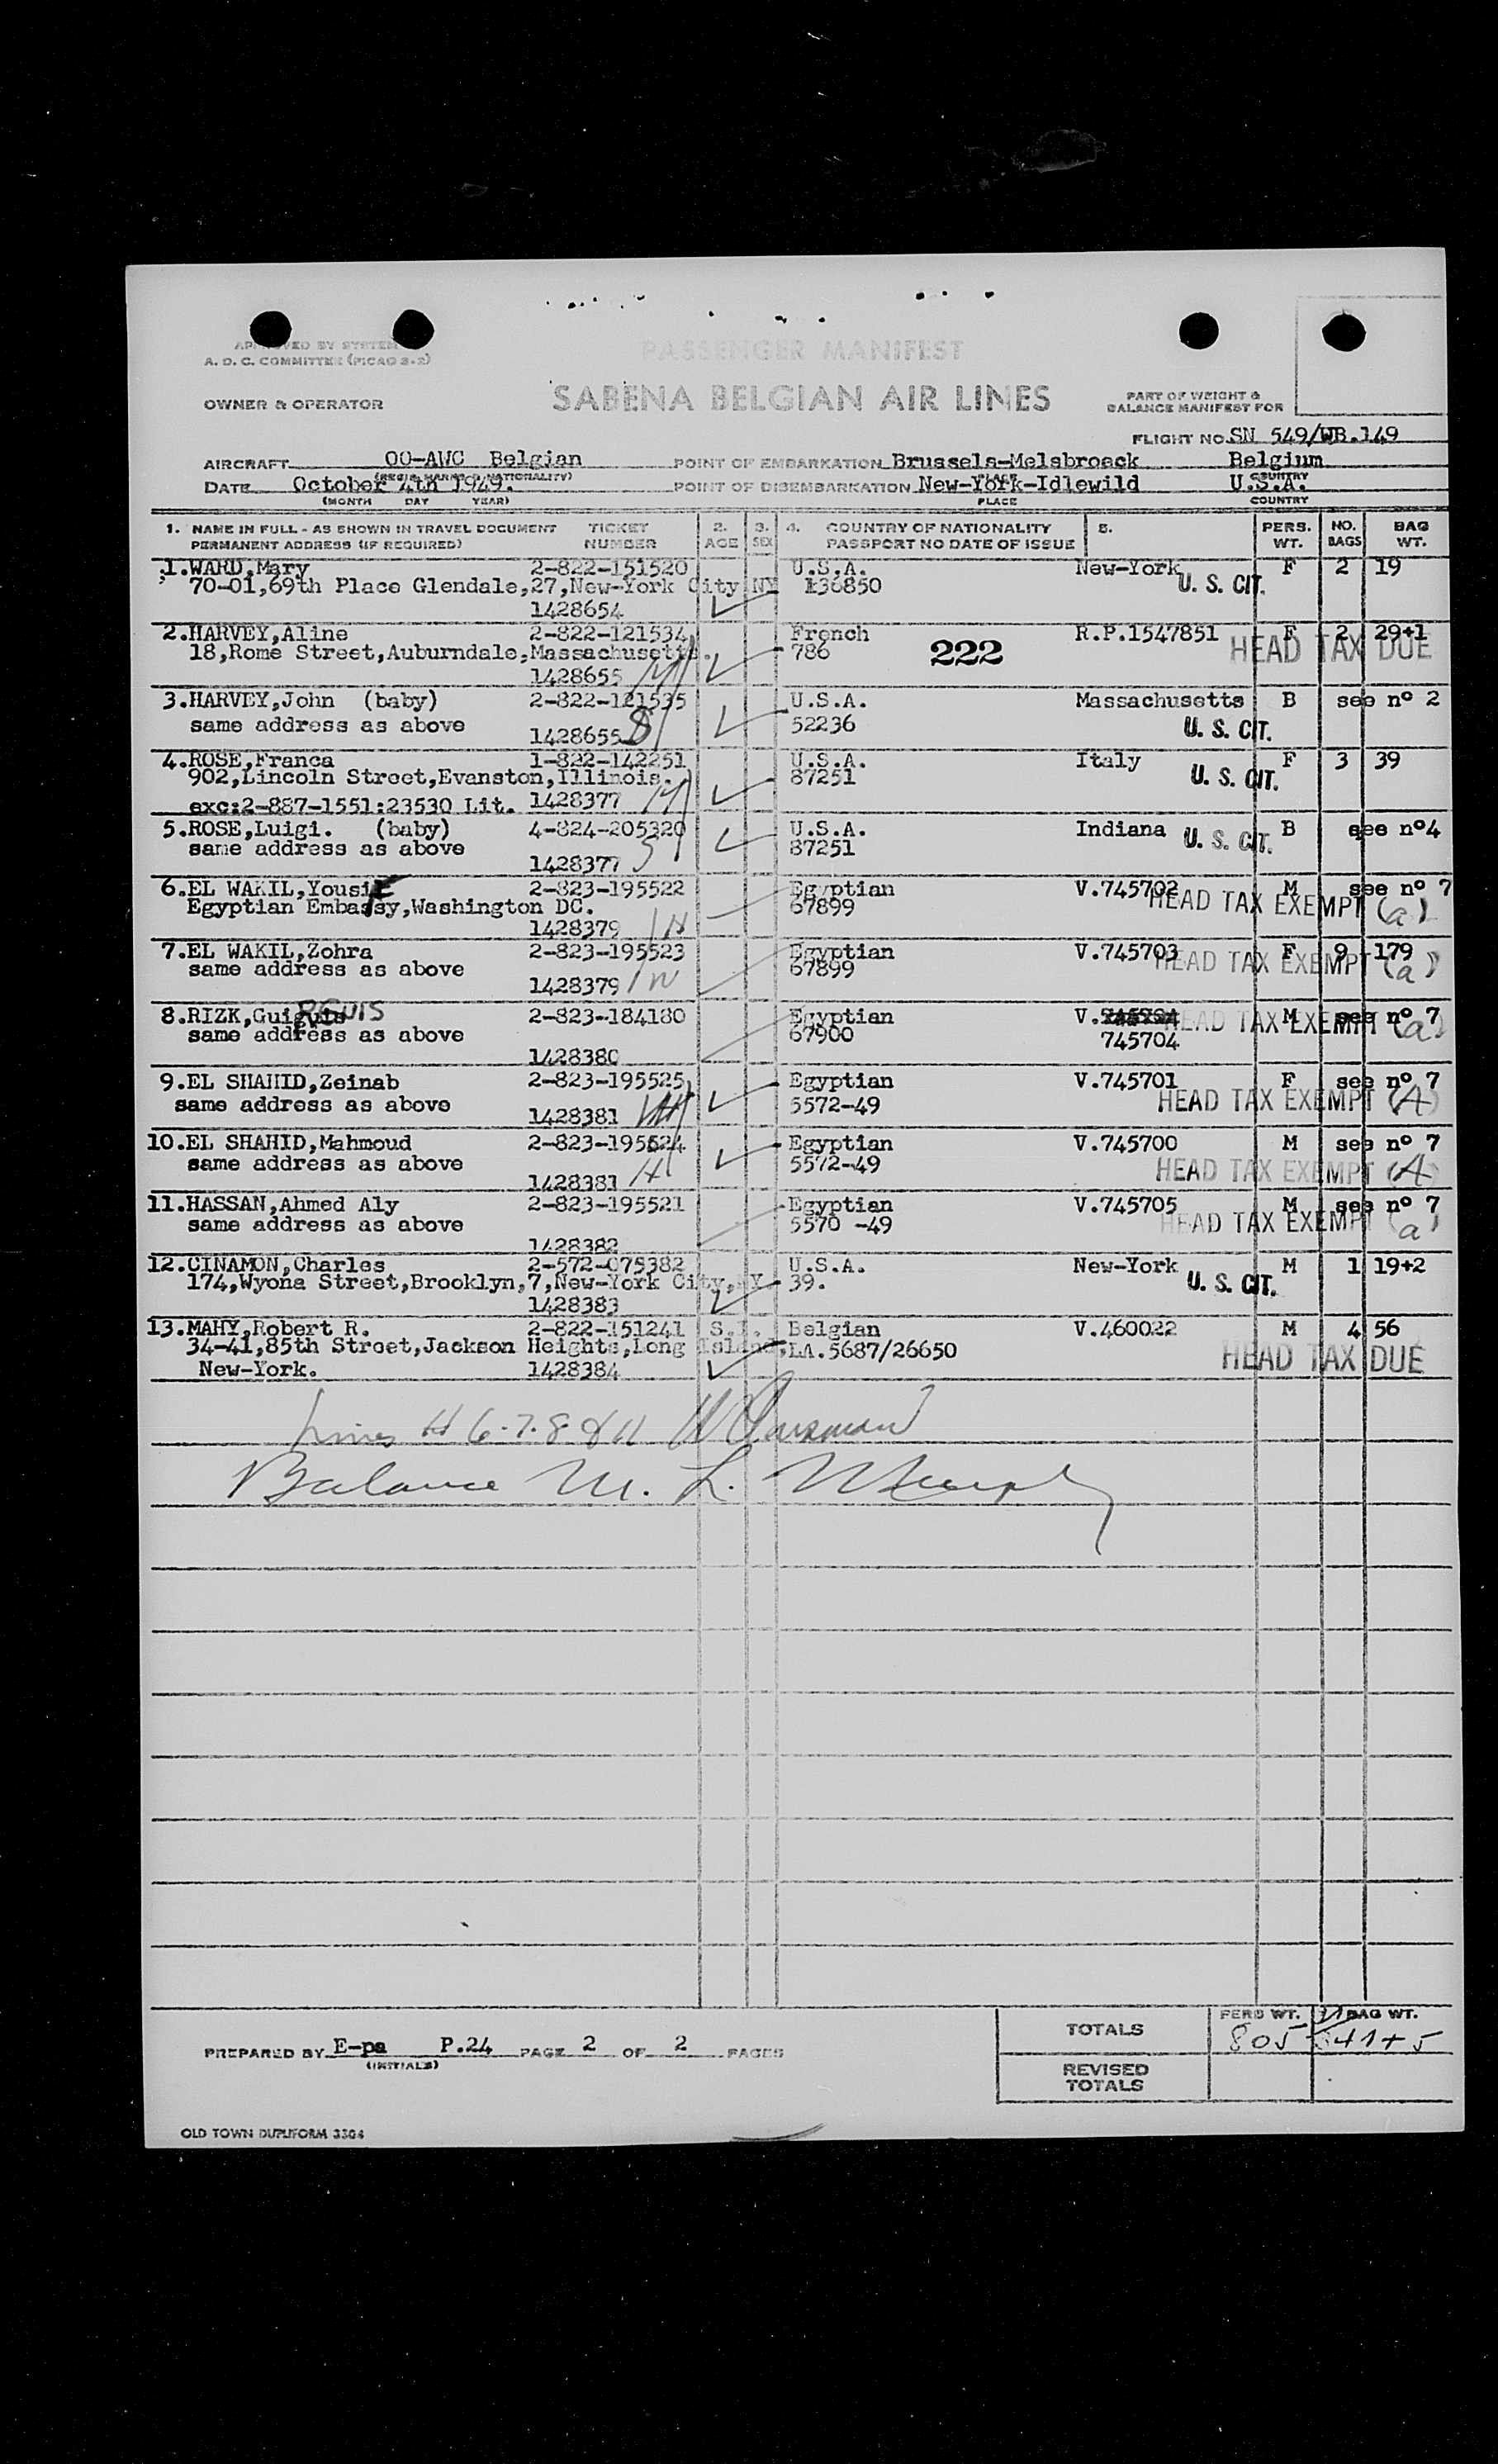 APPROVED BY SYSTEM
A. D. C. COMMITTEE (PICAO 2-2)
PASSENGER MANIFEST
OWNER & OPERATOR
SABENA BELGIAN AIR LINES
PART OF WEIGHT &
BALANCE MANIFEST FOR
FLIGHT NO. SN 549/WB.149
AIRCRAFT OO-AWC Belgian POINT OF EMBARKATION Brussels-Melsbroeck Belgium
DATE October 4th 1949. POINT OF DISEMBARKATION New-York-Idlewild U.S.A.
(MONTH DAY YEAR) PLACE COUNTRY
1. NAME IN FULL - AS SHOWN IN TRAVEL DOCUMENT TICKET 2. 3. 4. COUNTRY OF NATIONALITY 5. PERS. NO. BAG
PERMANENT ADDRESS (IF REQUIRED) NUMBER AGE SEX PASSPORT NO DATE OF ISSUE WT. BAGS WT.
1.WARD,Mary 2-822-151520 U.S.A. New-York F 2 19
70-01,69th Place Glendale,27,New-York City NY 136850 U. S. CIT.
1428654
2.HARVEY,Aline 2-822-121534 French R.P.1547851 F 2 29+1
18,Rome Street,Auburndale,Massachusetts. 786 222 HEAD TAX DUE
1428655
3.HARVEY,John (baby) 2-822-121535 U.S.A. Massachusetts B see nº 2
same address as above 1428655 52236 U. S. CIT.
4.ROSE,Franca 1-822-142251 U.S.A. Italy F 3 39
902,Lincoln Street,Evanston,Illinois. 87251 U. S. CIT.
exc:2-887-1551:23530 Lit. 1428377
5.ROSE,Luigi. (baby) 4-824-205320 U.S.A. Indiana B see nº4
same address as above 87251 U. S. CIT.
1428377
6.EL WAKIL,YousiF 2-823-195522 Egyptian V.745702 M see nº 7
Egyptian Embassy,Washington DC. 67899 HEAD TAX EXEMPT (a)
1428379
7.EL WAKIL,Zohra 2-823-195523 Egyptian V.745703 F 9 179
same address as above 67899 HEAD TAX EXEMPT (a)
1428379
8.RIZK,Guirguis 2-823-184180 Egyptian V. M see nº 7
same address as above 67900 745704 HEAD TAX EXEMPT (a)
1428380
9.EL SHAHID,Zeinab 2-823-195525 Egyptian V.745701 F see nº 7
same address as above 1428381 5572-49 HEAD TAX EXEMPT (A)
10.EL SHAHID,Mahmoud 2-823-195524 Egyptian V.745700 M see nº 7
same address as above 5572-49 HEAD TAX EXEMPT (A)
1428381
11.HASSAN,Ahmed Aly 2-823-195521 Egyptian V.745705 M see nº 7
same address as above 5570 -49 HEAD TAX EXEMPT (a)
1428382
12.CINAMON,Charles 2-572-075382 U.S.A. New-York M 1 19+2
174,Wyona Street,Brooklyn,7,New-York City,NY 39. U. S. CIT.
1428383
13.MAHY,Robert R. 2-822-151241 S.I. Belgian V.460022 M 4 56
34-41,85th Street,Jackson Heights,Long Island, LA.5687/26650 HEAD TAX DUE
New-York. 1428384
Lines # 6-7-8 & 11
Balance M. L. Murphy
TOTALS PERS WT. BAG WT.
805 341+5
PREPARED BY E-pa P.24 PAGE 2 OF 2 PAGES
(INITIALS)
REVISED
TOTALS
OLD TOWN DUPLIFORM 3304